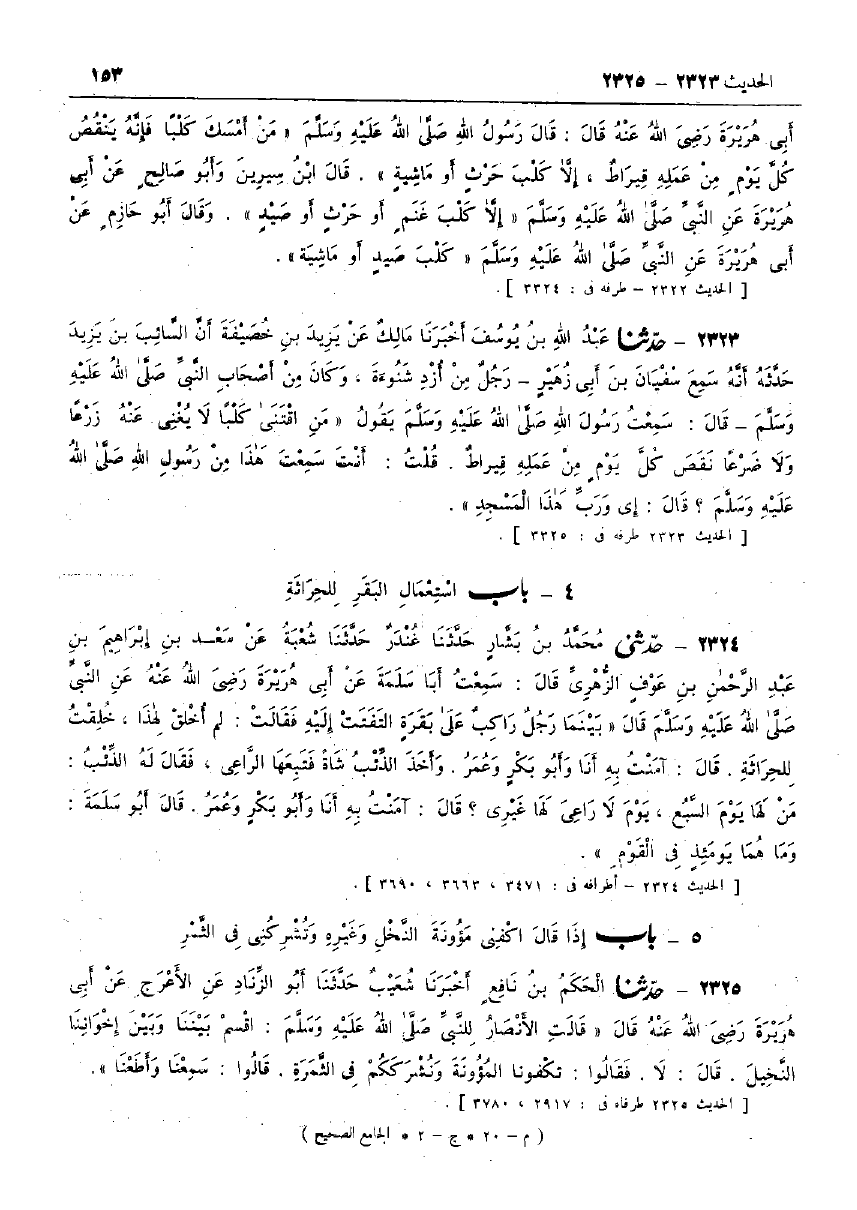 الحديث ٢٣٢٣ – ٢٣٢٥ ١٥٣
أَبِى هُرَيْرَةَ رَضِىَ اللهُ عَنْهُ قَالَ : قَالَ رَسُولُ اللهِ صَلَّىٰ اللهُ عَلَيْهِ وَسَلَّمَ « مَنْ أَمْسَكَ كَلْبًا فَإِنَّهُ يَنْقُصُ
كُلَّ يَوْمٍ مِنْ عَمَلِهِ قِيرَاطٌ ، إِلَّا كَلْبَ حَرْثٍ أَو مَاشِيةٍ » . قَالَ ابْنُ سِيرِينَ وَأَبُو صَالِحٍ عَنْ أَبِى
هُرَيْرَةَ عَنِ النَّبِىِّ صَلَّىٰ اللهُ عَلَيْهِ وَسَلَّمَ « إِلَّا كَلْبَ غَنَمٍ أَو حَرْثٍ أَو صَيْدٍ » . وَقَالَ أَبُو حَازِمٍ عَنْ
أَبِى هُرَيْرَةَ عَنِ النَّبِىِّ صَلَّىٰ اللهُ عَلَيْهِ وَسَلَّمَ « كَلْبَ صَيدٍ أَو مَاشِيَة » .
[ الحديث ٢٣٢٢ – طرفه فى : ٣٣٢٤ ] .
٢٣٢٣ – حدّثنا عَبْدُ اللهِ بنُ يُوسُفَ أَخْبَرَنَا مَالِكٌ عَنْ يَزِيدَ بنِ خُصَيْفَةَ أَنَّ السَّائِبَ بنَ يَزِيدَ
حَدَّثَهُ أَنَّهُ سَمِعَ سُفْيَانَ بنَ أَبِى زُهَيْرٍ – رَجُلٌ مِنْ أَزْدِ شَنُوءَةَ ، وَكَانَ مِنْ أَصْحَابِ النَّبِىِّ صَلَّىٰ اللهُ عَلَيْهِ
وَسَلَّمَ – قَالَ : سَمِعْتُ رَسُولَ اللهِ صَلَّىٰ اللهُ عَلَيْهِ وَسَلَّمَ يَقُولُ « مَنِ اقْتَنَىٰ كَلْبًا لَا يُغْنِى عَنْهُ زَرْعًا
وَلَا ضَرْعًا نَقَصَ كُلَّ يَوْمٍ مِنْ عَمَلِهِ قِيرَاطٌ . قُلْتُ : أَنْتَ سَمِعْتَ هَٰذَا مِنْ رَسُولِ اللهِ صَلَّىٰ اللهُ
عَلَيْهِ وَسَلَّمَ ؟ قَالَ : إِى وَرَبِّ هَٰذَا الْمَسْجِدِ » .
[ الحديث ٢٣٢٣ طرفه فى : ٣٣٢٥ ] .
٤ – باب اسْتِعْمَالِ البَقَرِ لِلحِرَاثَةِ
٢٣٢٤ – حدّثنى مُحَمَّدُ بنُ بَشَّارٍ حَدَّثَنَا غُنْدَرٌ حَدَّثَنَا شُعْبَةُ عَنْ سَعْدِ بنِ إِبْرَاهِيمَ بنِ
عَبْدِ الرَّحْمٰنِ بنِ عَوْفٍ الزُّهْرِىِّ قَالَ : سَمِعْتُ أَبَا سَلَمَةَ عَنْ أَبِى هُرَيْرَةَ رَضِىَ اللهُ عَنْهُ عَنِ النَّبِىِّ
صَلَّىٰ اللهُ عَلَيْهِ وَسَلَّمَ قَالَ « بَيْنَمَا رَجُلٌ رَاكِبٌ عَلَىٰ بَقَرَةٍ التَفَتَتْ إِلَيْهِ فَقَالَتْ : لَم أُخْلَقْ لِهَٰذَا ، خُلِقْتُ
لِلحِرَاثَةِ . قَالَ : آمَنْتُ بِهِ أَنَا وَأَبُو بَكْرٍ وَعُمَرُ . وَأَخَذَ الذِّئْبُ شَاةً فَتَبِعَهَا الرَّاعِى ، فَقَالَ لَهُ الذِّئْبُ :
مَنْ لَهَا يَوْمَ السَّبُعِ ، يَوْمَ لَا رَاعِىَ لَهَا غَيْرِى ؟ قَالَ : آمَنْتُ بِهِ أَنَا وَأَبُو بَكْرٍ وَعُمَرُ . قَالَ أَبُو سَلَمَةَ :
وَمَا هُمَا يَومَئِذٍ فِى الْقَوْمِ » .
[ الحديث ٢٣٢٤ – أطرافه فى : ٣٤٧١ ، ٣٦٦٣ ، ٣٦٩٠ ] .
٥ – باب إِذَا قَالَ اكْفِنِى مَؤُونَةَ النَّخْلِ وَغَيْرِهِ وَتُشْرِكُنِى فِى الثَّمَرِ
٢٣٢٥ – حدّثنا الْحَكَمُ بنُ نَافِعٍ أَخْبَرَنَا شُعَيْبٌ حَدَّثَنَا أَبُو الزِّنَادِ عَنِ الأَعْرَجِ عَنْ أَبِى
هُرَيْرَةَ رَضِىَ اللهُ عَنْهُ قَالَ « قَالَتِ الأَنْصَارُ لِلنَّبِىِّ صَلَّىٰ اللهُ عَلَيْهِ وَسَلَّمَ : اقْسِمْ بَيْنَنَا وَبَيْنَ إِخْوَانِنَا
النَّخِيلَ . قَالَ : لَا . فَقَالُوا : تكْفُونا المُؤُونَةَ وَنُشْرَكْكُمْ فِى الثَّمرَةِ . قَالُوا : سَمِعْنَا وَأَطَعْنَا » .
[ الحديث ٢٣٢٥ طرفاه فى : ٢٩١٧ ، ٣٧٨٠ ] .
( م – ٢٠ * ج – ٢ * الجامع الصحيح )